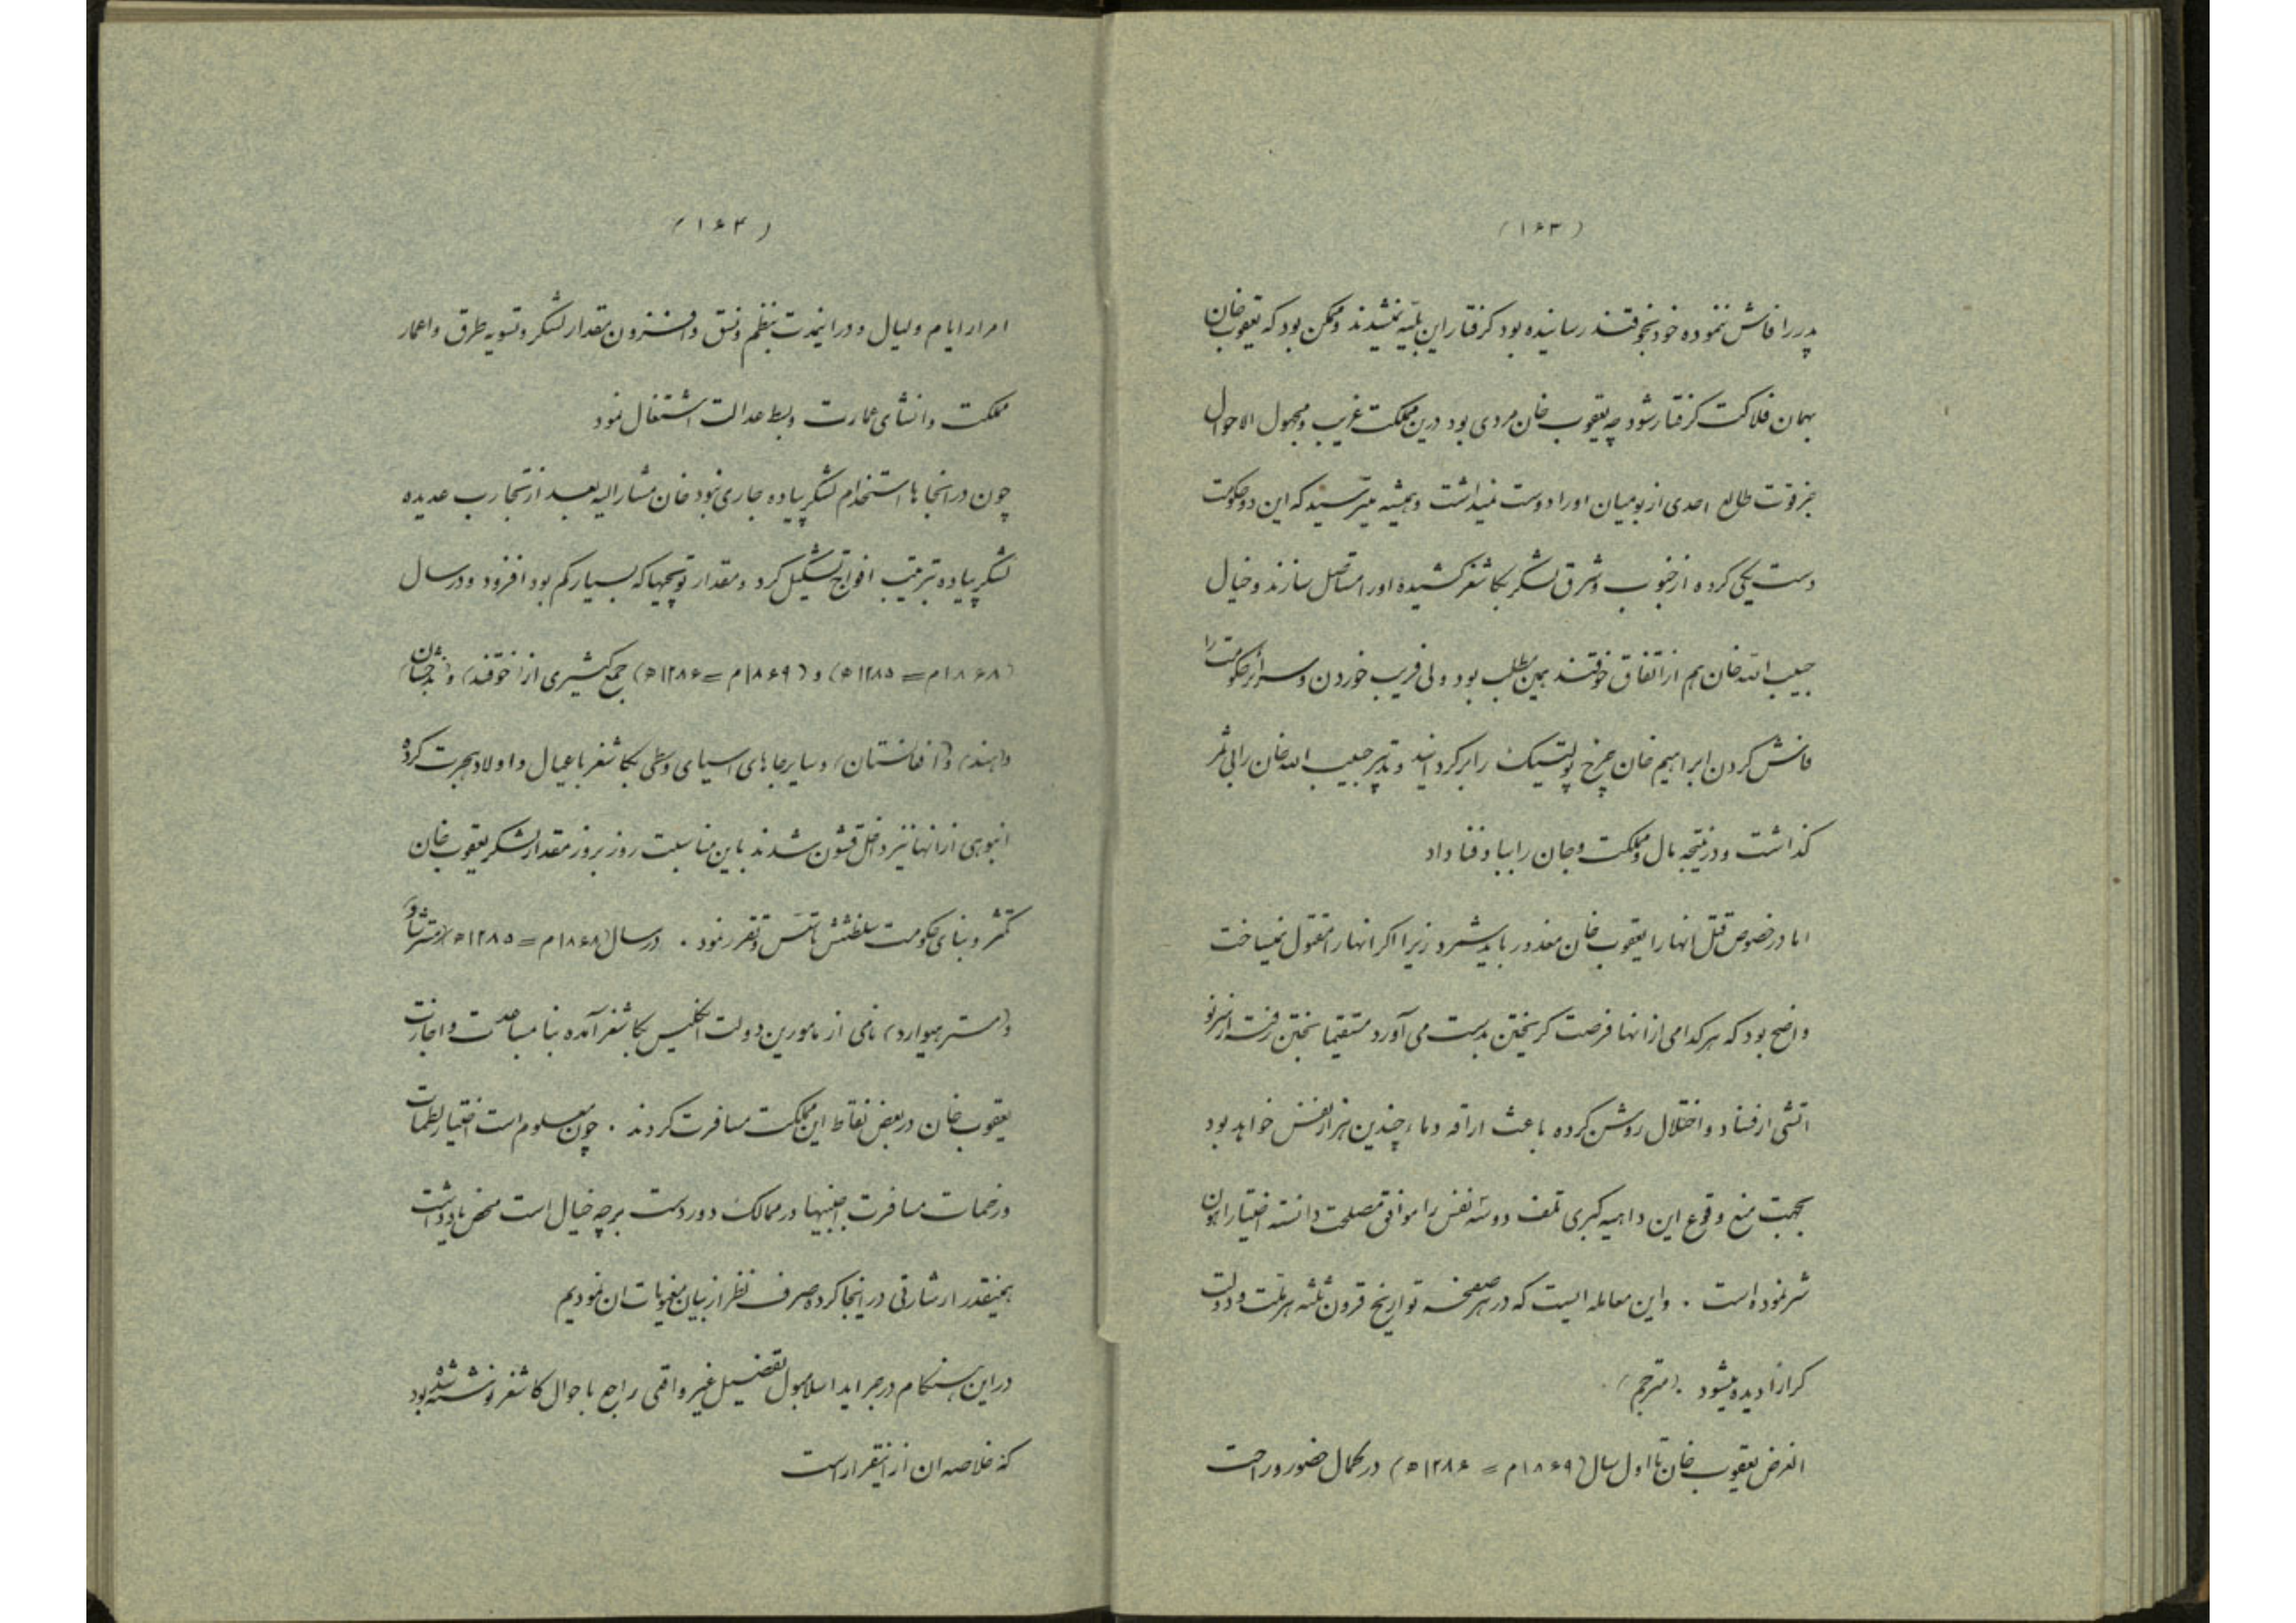 (۱۶۳)
پدر را فاش ننموده خود بخوقند رسانیده بود کرفتار این بلیه نمیشدند و ممکن بود که یعقوب خان
بهمان فلاکت کرفتار شود چه یعقوب خان مردی بود درین مملکت غریب و مجهول الاحوال
بجز قوت طالع احدی از بومیان اورا دوست نمیداشت و همیشه میترسید که این دو حکومت
دست یکی کرده از جنوب و شرق لشکر بکاشغر کشیده اورا مستاصل سازند و خیال
حبیب الله خان هم از اتفاق خوقند همین مطلب بود ولی فریب خوردن و سرائر حکومت را
فاش کردن ابراهیم خان چرخ پولتیک را برکردانید و تدبیر حبیب الله خان رابی ثمر
کذاشت و در نتیجه مال و مملکت و جان را بباد فنا داد
اما در خصوص قتل انها را یعقوب خان معذور باید شمرد زیرا اکر انها را مقتول نمیساخت
واضح بود که هرکدامی از انها فرصت کریختن بدست می آورد مستقیما بختن رفته از سرنو
اتشی از فساد و اختلال روشن کرده باعث اراقه دماء چندین هزار نفس خواهد بود
بجهت منع وقوع این داهیه کبری تلف دوسه نفس را موافق مصلحت دانسته اختیار اهون
شر نموده است . و این معامله ایست که در هر صفحه تواریخ قرون ثلثه هر ملت و دولت
کرارا دیده میشود .(مترجم)
الغرض یعقوب خان تا اول سال (۱۸۶۹م = ۱۲۸۶ه) در کمال حضور و راحت
(۱۶۴)
امرار ایام و لیال و در اینمدت بنظم و نسق و افزون مقدار لشکر و تسویه طرق و اعمار
مملکت و انشای عمارت و بسط عدالت اشتغال نمود
چون در انجاها استخدام لشکر پیاده جاری نبود خان مشار الیه بعد از تجارب عدیده
لشکر پیاده بترتیب افواج تشکیل کرد و مقدار توپچیها که بسیار کم بود افزود و در سال
(۱۸۶۸م = ۱۲۸۵ه) و (۱۸۶۹م = ۱۲۸۶ه) جمع کثیری از (خوقند) و (بدخشان)
و(هند) و(افغانستان) و سایر جاهای اسیای وسطی بکاشغر باعیال و اولاد هجرت کرده
انبوهی از انها نیز داخل قشون شدند باین مناسبت روز بروز مقدار لشکر یعقوب خان
تکثر و بنای حکومت سلطنتش تاسس و تقرر نمود . در سال (۱۸۶۸م = ۱۲۸۵ه) (مستر شاو)
و(مستر هیوارد) نامی از مامورین دولت انکلیس بکاشغر آمده بنا بمساعدت و اجازت
یعقوب خان در بعض نقاط این مملکت مسافرت کردند . چون معلوم است اختیار لطمات
و زحمات مسافرت اجنبیها در ممالک دوردست برچه خیال است محض یادداشت
بهمینقدر اشارتی در اینجا کرده صرف نظر از بیان مغویات ان نمودیم
در این هنکام در جراید اسلامبول تفصیل غیر واقعی راجع باحوال کاشغر نوشته شده بود
که خلاصه ان از اینقرار است